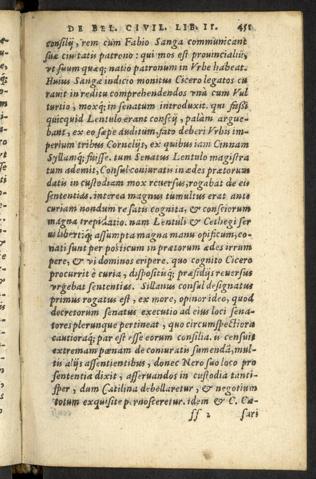 DE BEL. CIVIL. LIB. II. 451
consilij, rem cum Fabio Sanga communicant
suæ ciuitatis patrono: qui mos est prouincialiũ,
vt suum quæq; natio patronum in Vrbe habeat.
Huius Sangæ indicio monitus Cicero legatos cu
rauit in reditu comprehendendos vnà cum Vul
turtio, moxq; in senatum introduxit. qui
quicquid Lentulo erant conscij, palàm argue-
bant, ex eo sæpe auditum, fato deberi Vrbis im-
perium tribus Cornelijs, ex quibus iam Cinnam
Syllamq; fuisse. tum Senatus Lentulo magistra
tum ademit, Consul coniuratis in ædes prætorum
datis in custodiam mox reuersus, rogabat de eis
sententias. interea magnus tumultus erat ante
curiam nondum re satis cognita, & consciorum
magna trepidatio. nam Lentuli & Cethegi ser
ui libertiq; assumpta magna manu opificum, co-
nati sunt per posticum in prætorum ædes irrum
pere, & vi dominos eripere. quo cognito Cicero
procurrit è curia, dispositisq; præsidijs reuersus
vrgebat sententias. Sillanus consul designatus
primus rogatus est, ex more, opinor ideo, quod
decretorum senatus executio ad eius loci sena-
tores plerunque pertineat, quo circumspectiora
cautioraq; par est esse eorum consilia. is censuit
extremam pœnam de coniuratis sumendã, mul-
tis alijs assentientibus, donec Nero suo loco pro
sententia dixit, asseruandos in custodia tanti-
sper, dum Catilina debellaretur, & negotium
totum exquisite p. rnosceretur. idem & C. Cæ-
ff 2 sari